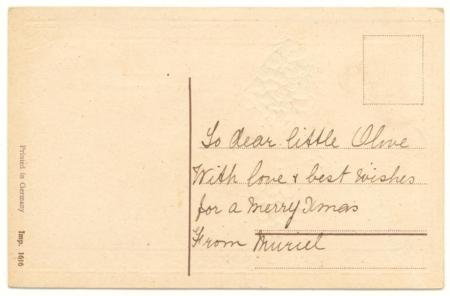 To dear little Olive
With love & best wishes
for a Merry Xmas
From Muriel
Printed in Germany
Imp. 1616